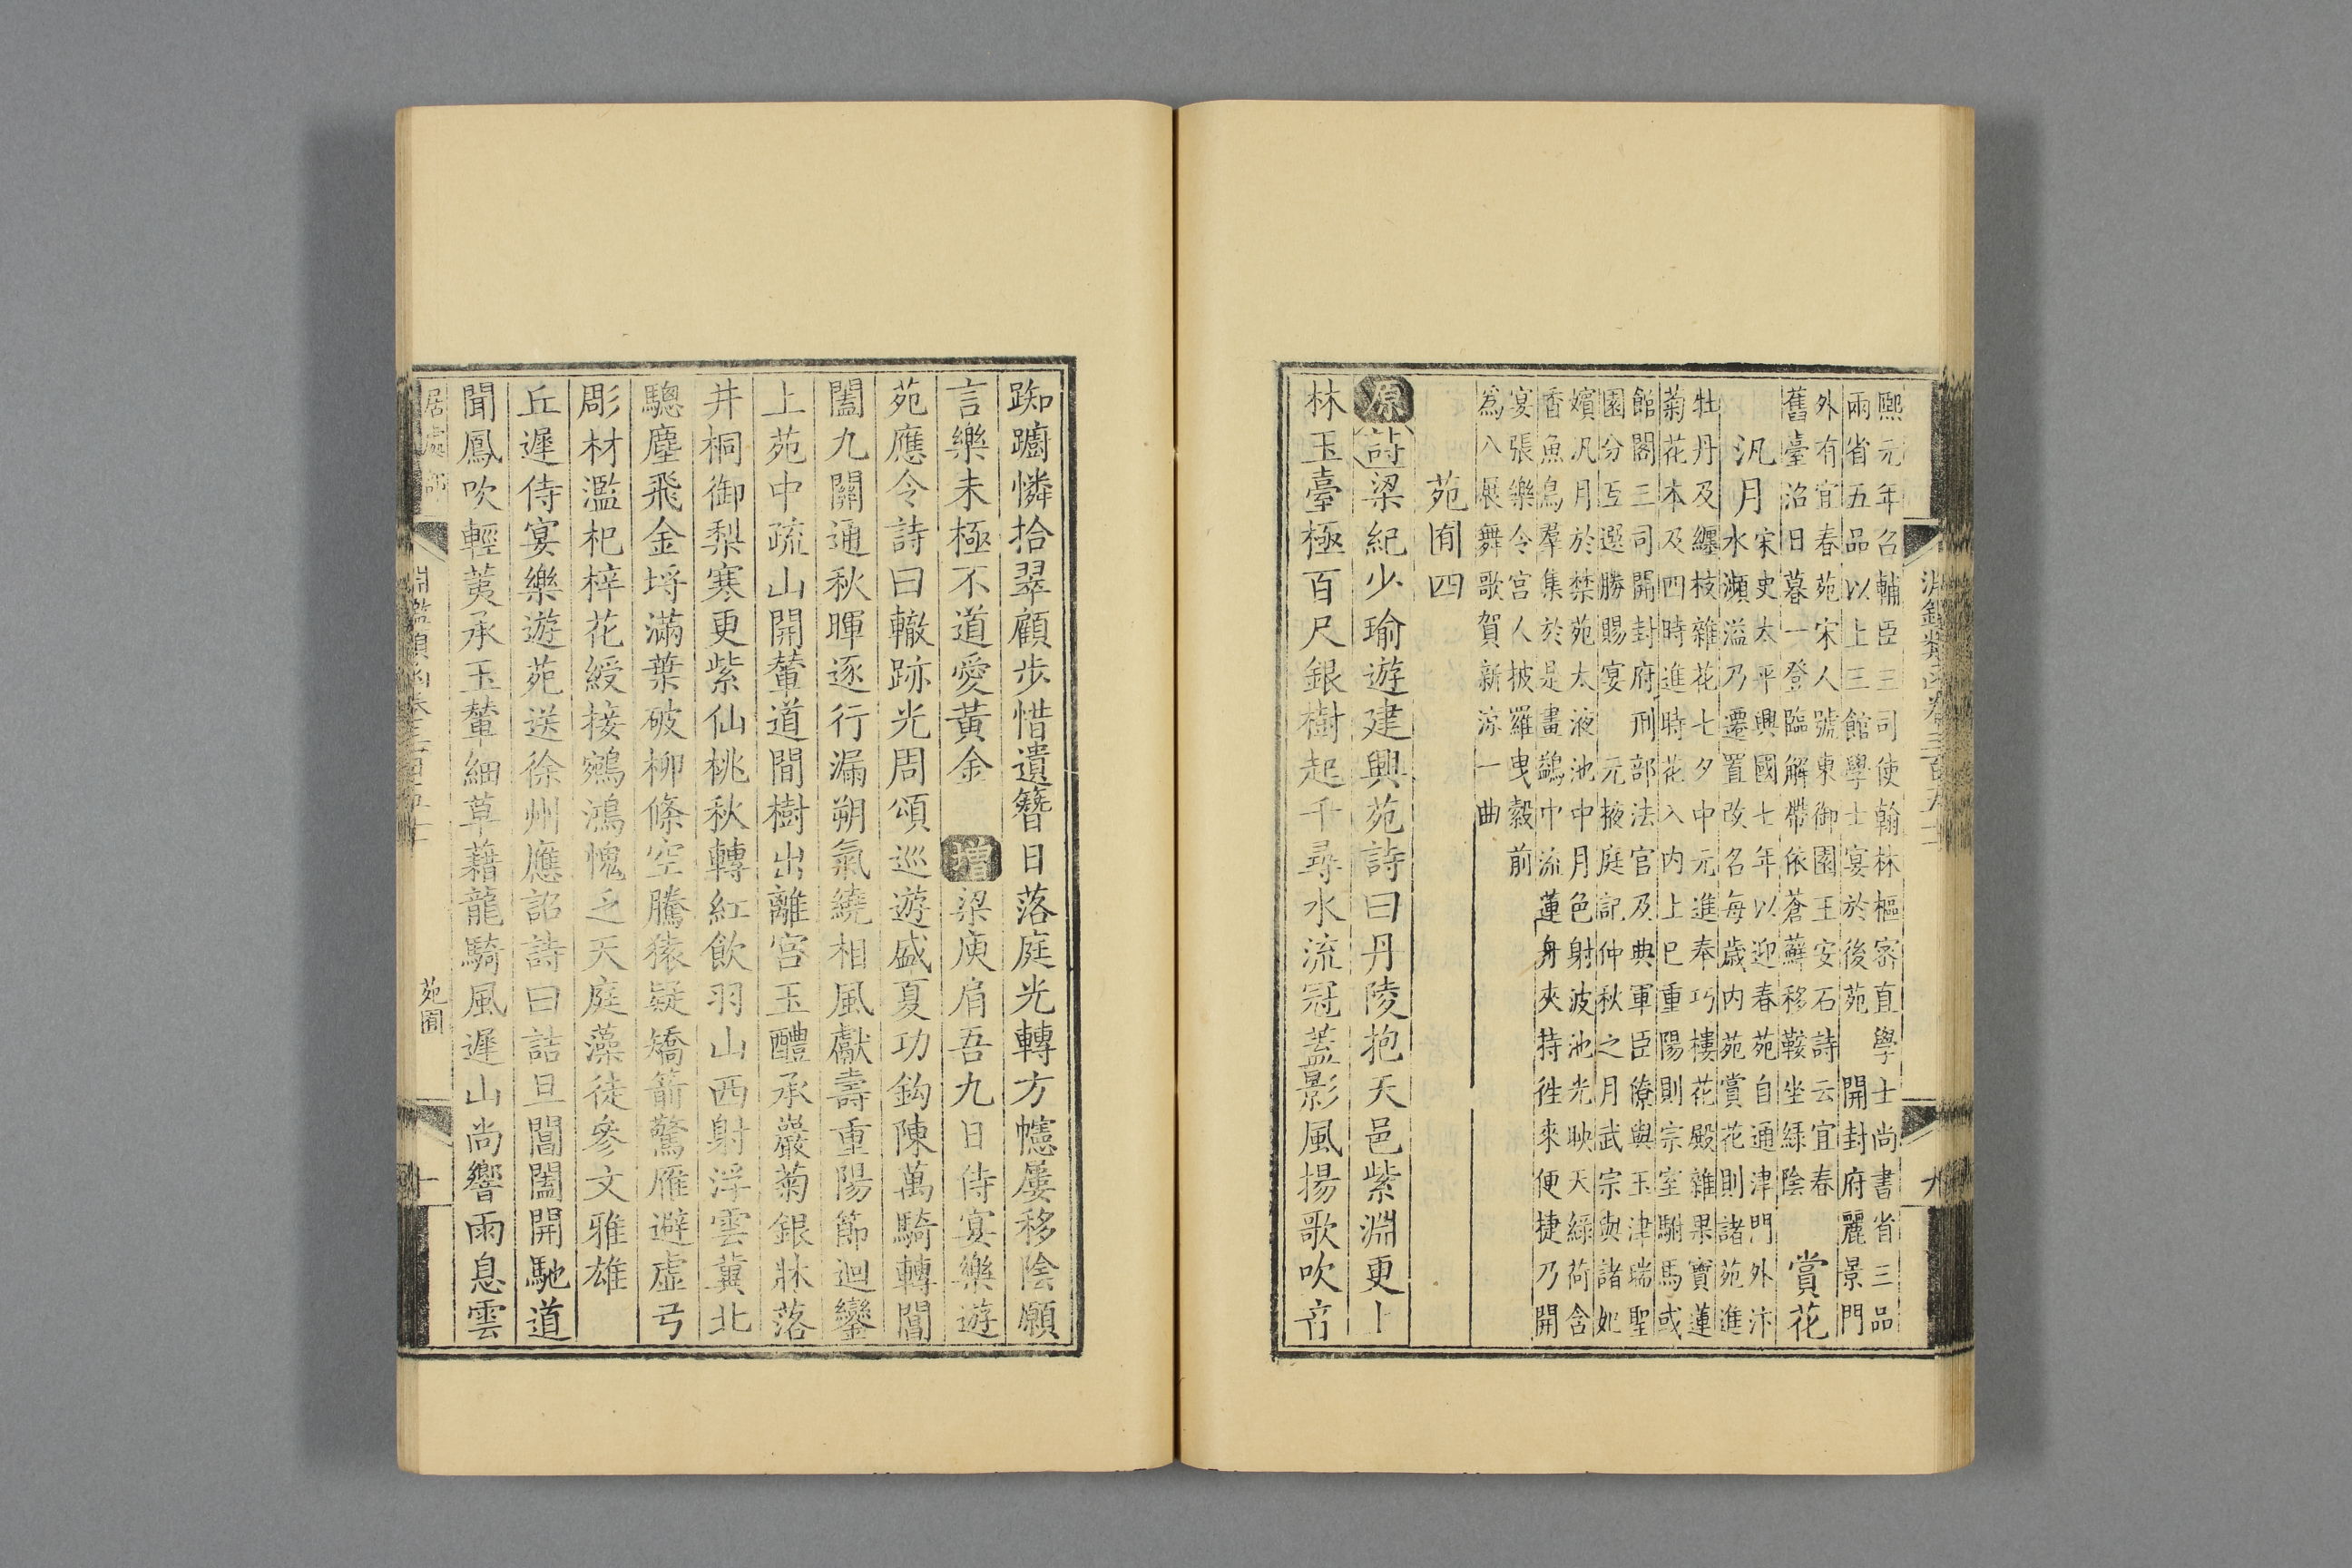 熙元年召輔臣三司使翰林樞密直學士尚書省三品
兩省五品以上三館學士宴於後苑 開封府麗景門
外有宜春苑宋人號東御園王安石詩云宜春
舊臺沼日暮一登臨解帶依蒼蘚移鞍坐緑陰
賞花
汎月
宋史太平興國七年以迎春苑自通津門外汴
水瀕溢乃遷置改名每歲内苑賞花則諸苑進
牡丹及纏枝雜花七夕中元進奉巧樓花殿雜果實蓮
菊花本及四時進時花入内上巳重陽則宗室駙馬或
館閣三司開封府刑部法官及典軍臣僚與玉津瑞聖
園分互選勝賜宴 元掖庭記仲秋之月武宗與諸妃
嬪汎月於禁苑太液池中月色射波池光映天緑荷含
香魚鳥羣集於是畫鷁中流蓮舟夾持徃來便捷乃開
宴張樂令宫人披羅曳縠前
爲八展舞歌賀新涼一曲
苑囿四
原詩梁紀少瑜遊建興苑詩曰丹陵抱天邑紫淵更上
林玉臺極百尺銀樹起千尋水流冠蓋影風揚歌吹音
踟躕憐拾翠顧步惜遺簪日落庭光轉方幰屢移陰願
言樂未極不道愛黃金 增梁庾肩吾九日侍宴樂遊
苑應令詩曰轍跡光周頌巡遊盛夏功鈎陳萬騎轉閶
闔九關通秋暉逐行漏朔氣繞相風獻壽重陽節迴鑾
上苑中疏山開輦道間樹出離宫玉醴承巖菊銀牀落
井桐御梨寒更紫仙桃秋轉紅飲羽山西射浮雲冀北
驄塵飛金埒滿葉破柳條空騰猿疑矯箭驚雁避虛弓
彫材濫杞梓花綬接鵷鴻愧乏天庭藻徒參文雅雄
丘遲侍宴樂遊苑送徐州應詔詩曰詰旦閶闔開馳道
聞鳳吹輕荑承玉輦細草藉龍騎風遲山尚響雨息雲
居處部
苑囿